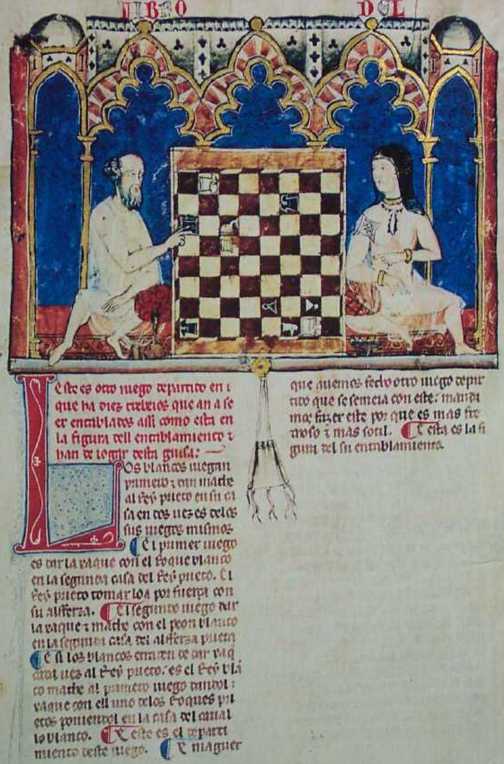 LIBRO
DEL
Este es otro iuego departido en i
que ha diez trebeios que an a se
er entablados assi como esta en
la figura dell entablamiento ⁊
han de iogar desta guisa:
Los blancos iuegan
primero ⁊ dan mathe
al Rey prieto en su ca
sa en dos uezes delos
sus iuegos mismos
El primer iuego
es dar la xaque con el roque blanco
en la segunda casa del Rey prieto. El
Rey prieto tomar loa por fuerça con
su alfferza. El segundo iuego dar
la xaque ⁊ mathe con el peon blanco
en la segunda casa del alfferza prieta
E si los blancos erraren de dar xaq
cada uez al Rey prieto. es el Rey blā
co mathe al primero iuego dandol
xaque con ell uno delos Roques pri
etos poniendol en la casa del cauall
lo blanco. E este es el departi
miento deste iuego. E maguer
que quiemos fecho otro iuego depar
tido que se semeia con este: manda
mos fazer este por que es mas fre
moso ⁊ mas sotil. E esta es la fi
gura del su entablamiento.